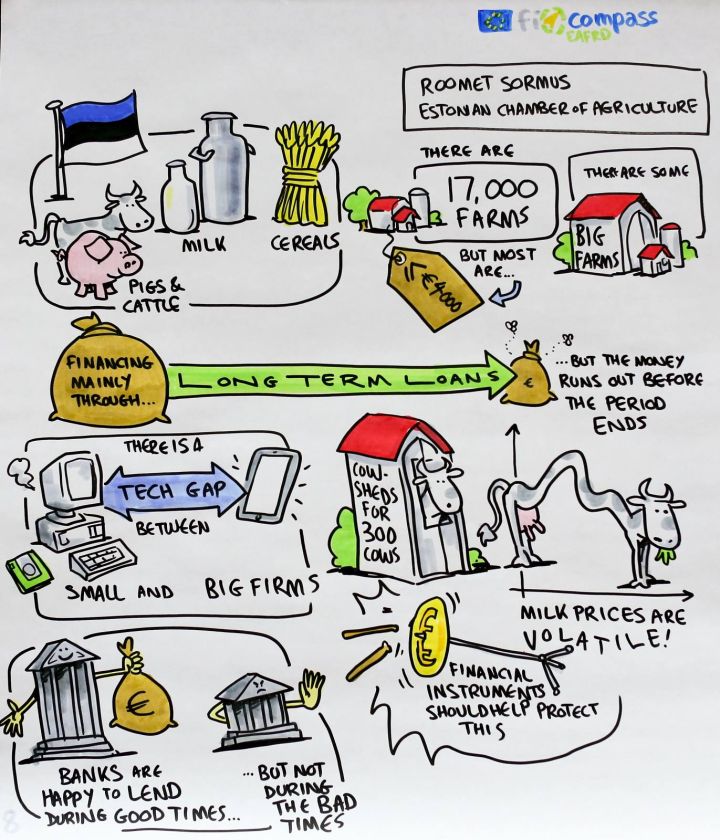 fi compass
EAFRD
ROOMET SORMUS
ESTONIAN CHAMBER OF AGRICULTURE
MILK
CEREALS
PIGS &
CATTLE
THERE ARE
17,000
FARMS
BUT MOST
ARE...
< €4000
THERE ARE SOME
BIG
FARMS
FINANCING
MAINLY
THROUGH...
LONG TERM LOANS
€
...BUT THE MONEY
RUNS OUT BEFORE
THE PERIOD
ENDS
THERE IS A
TECH GAP
BETWEEN
SMALL AND BIG FIRMS
COW-
SHEDS
FOR
300
COWS
MILK PRICES ARE
VOLATILE!
€
FINANCIAL
INSTRUMENTS
SHOULD HELP PROTECT
THIS
€
BANKS ARE
HAPPY TO LEND
DURING GOOD TIMES...
...BUT NOT
DURING
THE BAD
TIMES
8